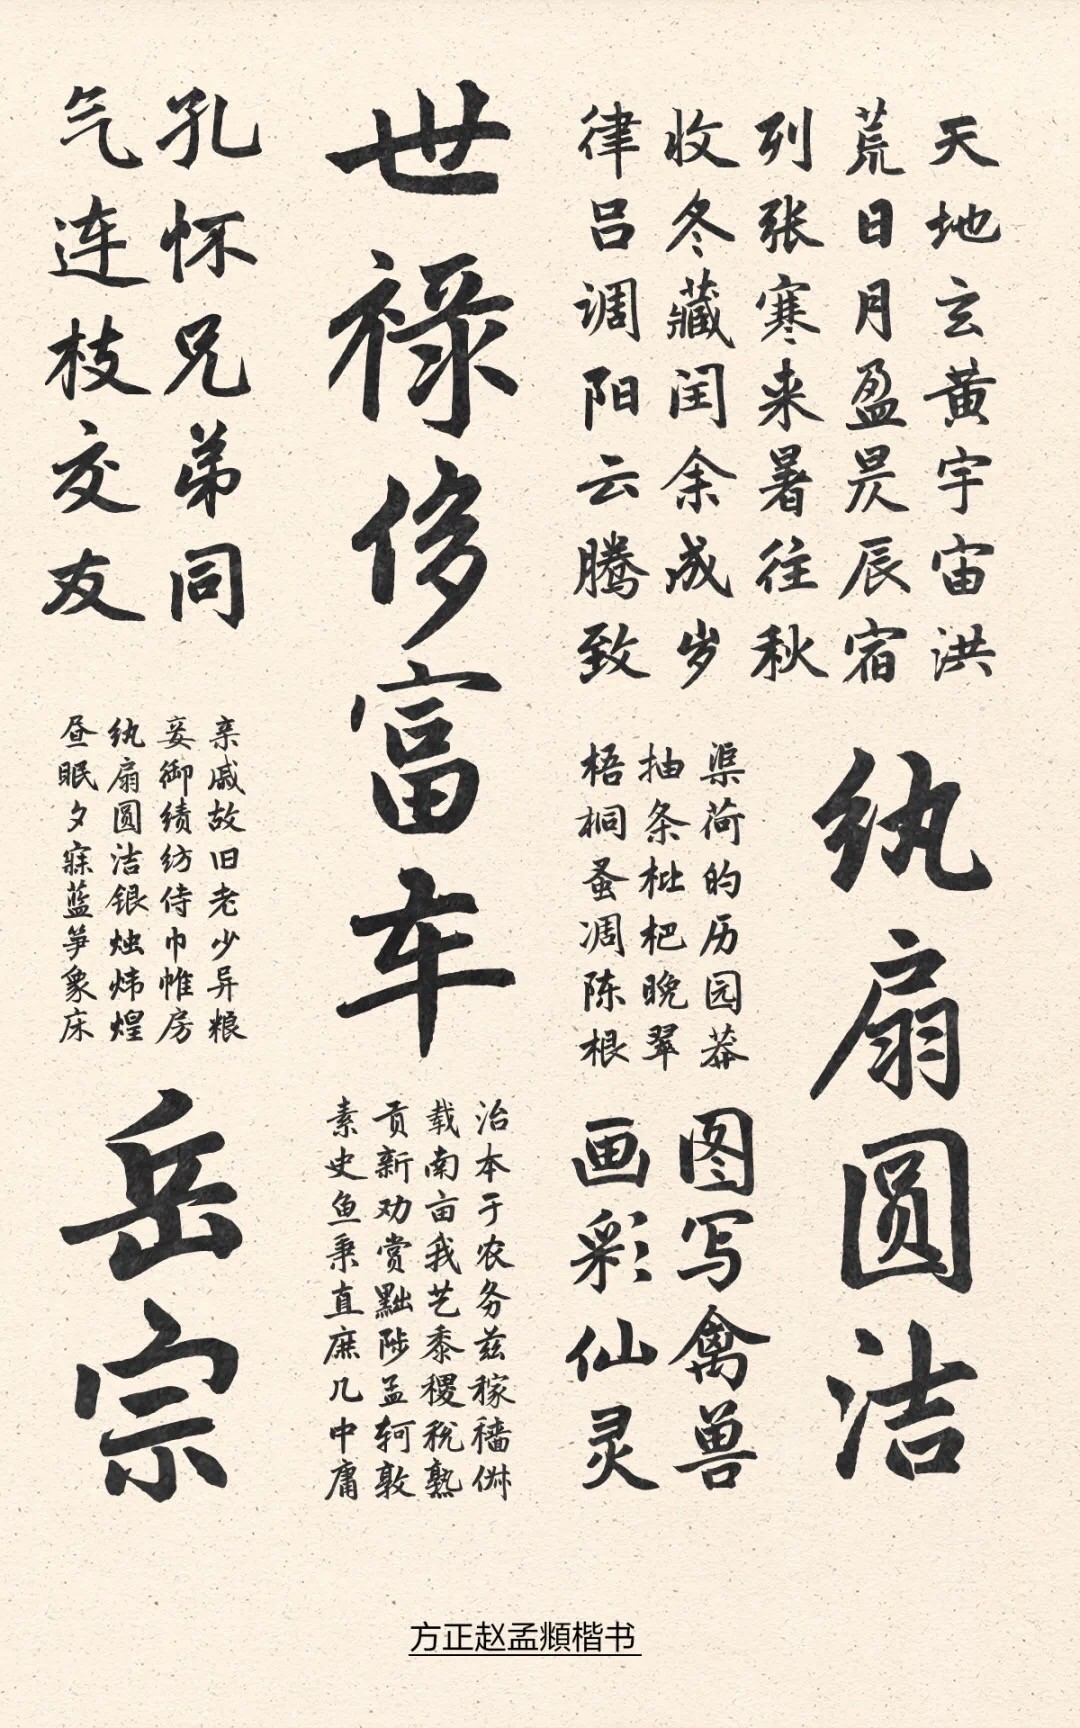 天地玄黄宇宙洪
荒日月盈昃辰宿
列张寒来暑往秋
收冬藏闰余成岁
律吕调阳云腾致
纨扇圆洁
渠荷的历园莽
抽条枇杷晚翠
梧桐蚤凋陈根
图写禽兽
画彩仙灵
世禄侈富车
治本于农务兹稼穑俶
载南亩我艺黍稷税熟
贡新劝赏黜陟孟轲敦
素史鱼秉直庶几中庸
孔怀兄弟同
气连枝交友
亲戚故旧老少异粮
妾御绩纺侍巾帷房
纨扇圆洁银烛炜煌
昼眠夕寐蓝笋象床
岳宗
方正赵孟頫楷书